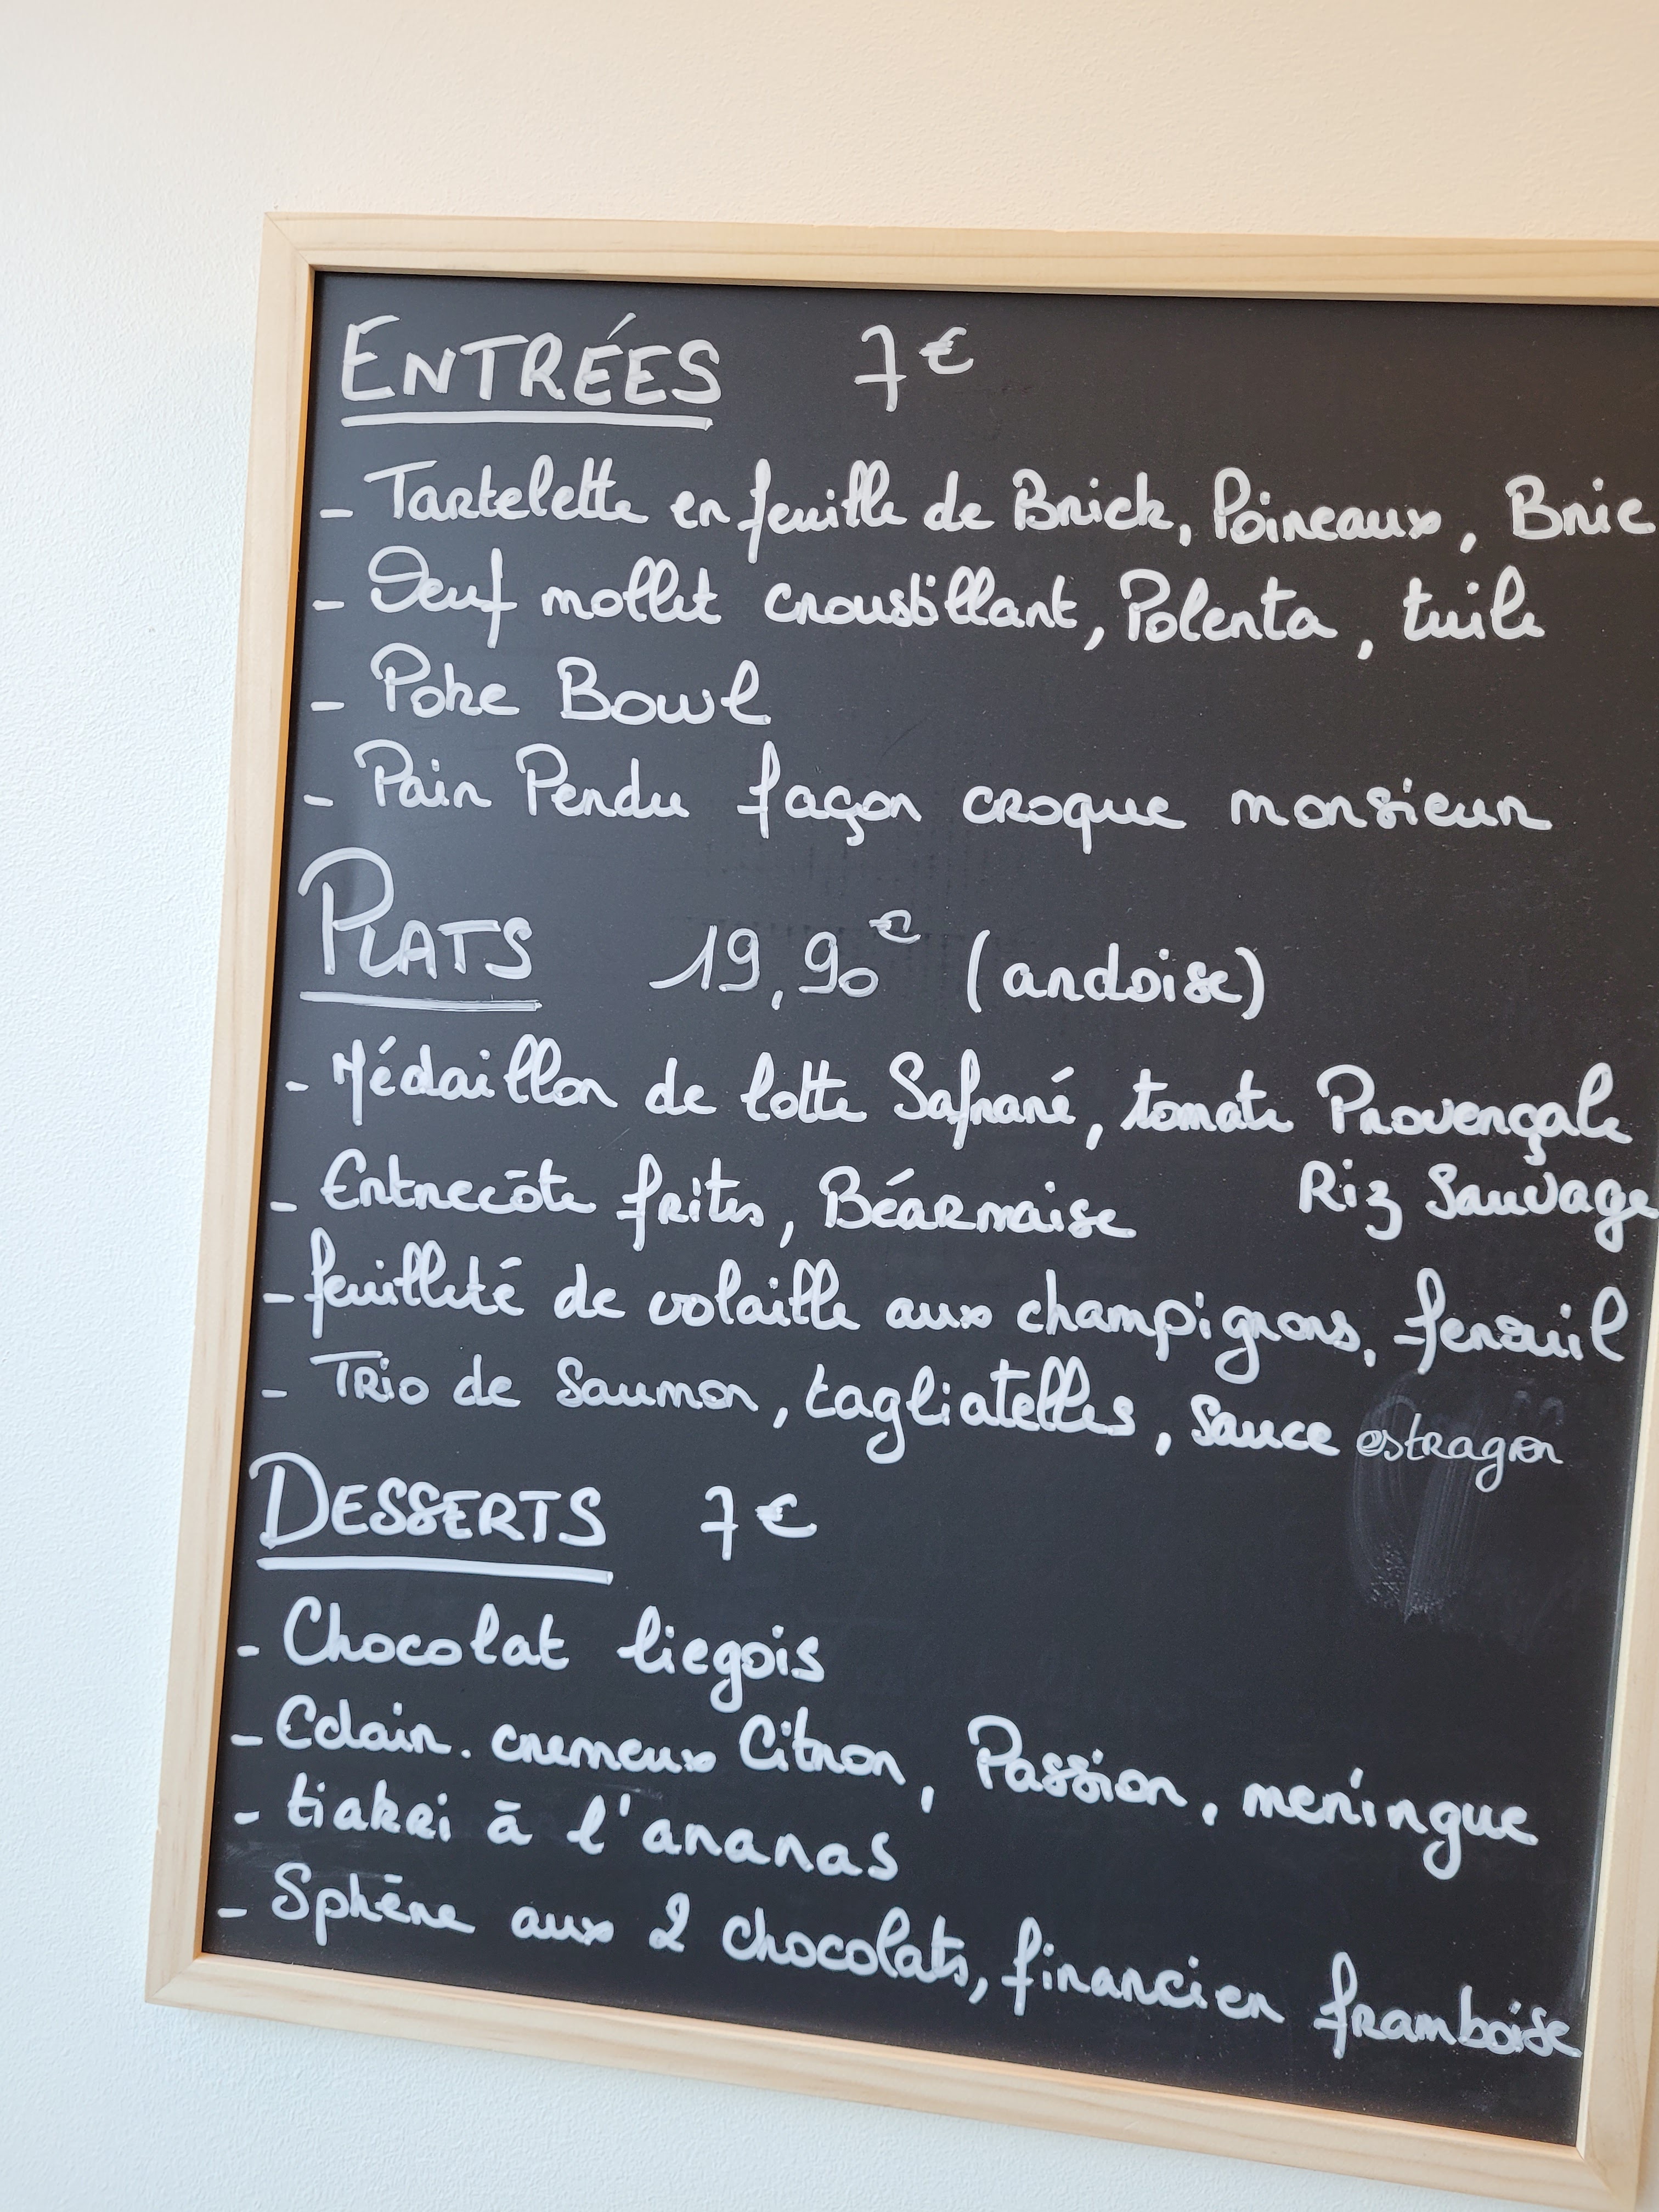 ENTRÉES 7€
- Tartelette en feuille de Brick, Poireaux, Brie
- Oeuf mollet croustillant, Polenta, tuile
- Poke Bowl
- Pain Perdu façon croque monsieur
PLATS 19,90€ (ardoise)
- Médaillon de lotte Safrané, tomate Provençale
Riz Sauvage
- Entrecôte frites, Béarnaise
- feuilleté de volaille aux champignons, fenouil
- Trio de Saumon, tagliatelles, Sauce estragon
DESSERTS 7€
- Chocolat liegois
- Eclair. cremeux Citron, Passion, meringue
- tiakri à l'ananas
- Sphère aux 2 chocolats, financier framboise